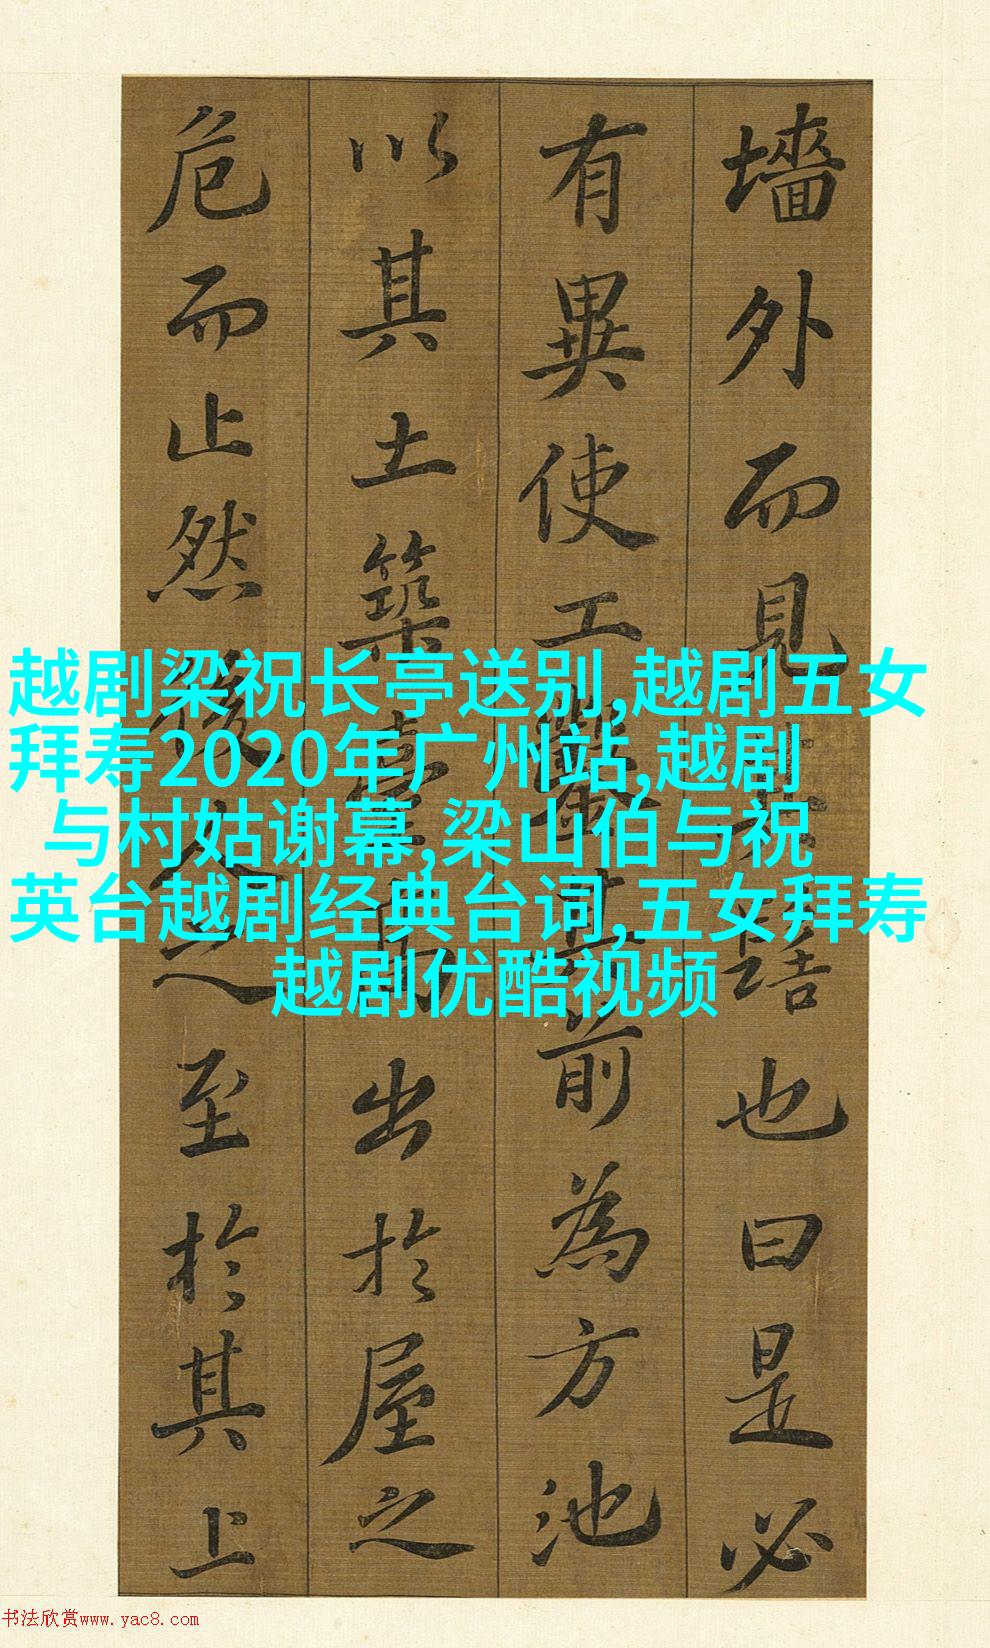 墻外而見其髻也曰是必
有異使工鑿其前為方池
以其土築臺高出於屋之
危而止然後人之至於其上
越剧梁祝长亭送别,越剧五女
拜寿2020年广州站,越剧
与村姑谢幕,梁山伯与祝
英台越剧经典台词,五女拜寿
越剧优酷视频
书法欣赏www.yac8.com